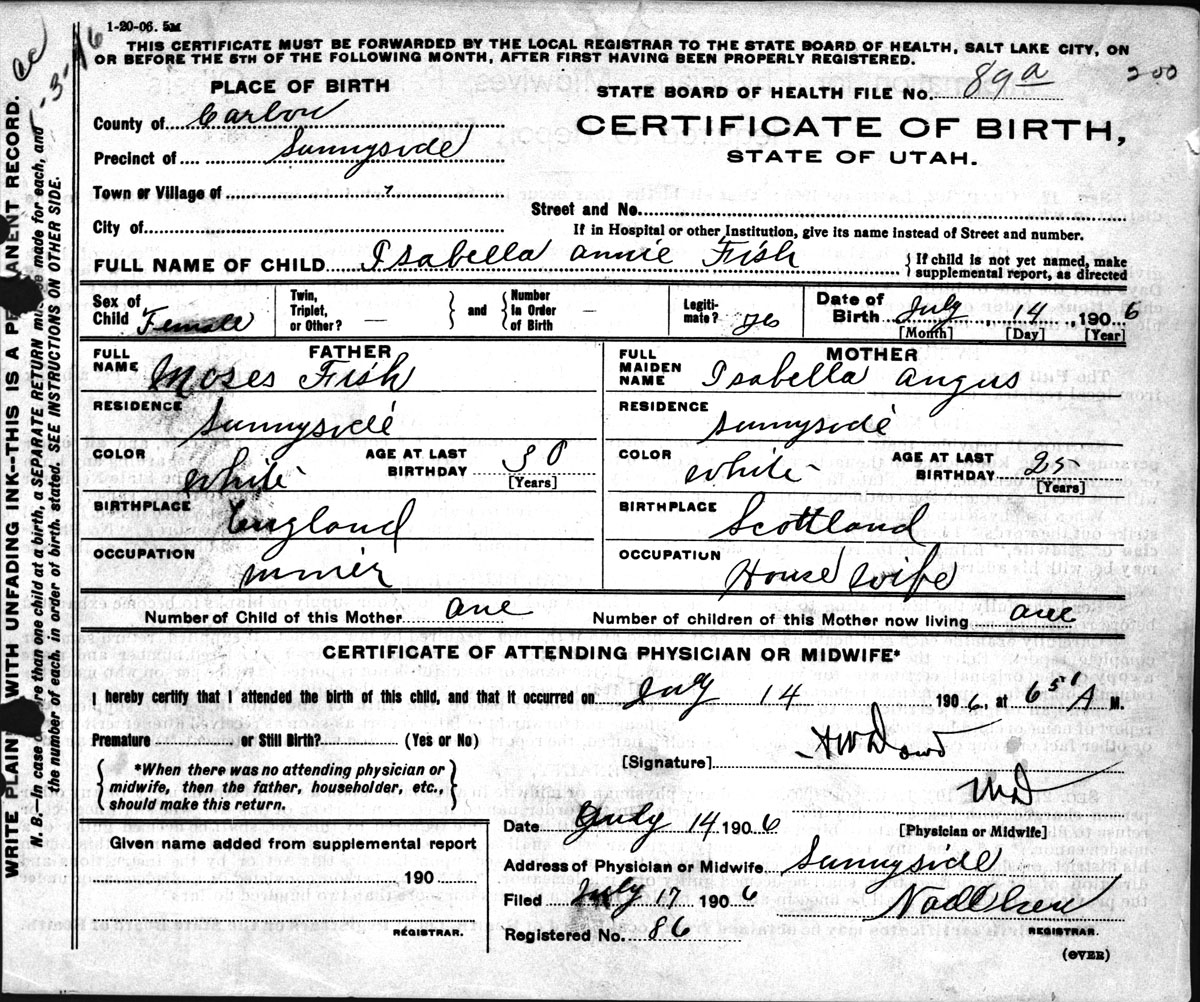 1-20-06. 5M
THIS CERTIFICATE MUST BE FORWARDED BY THE LOCAL REGISTRAR TO THE STATE BOARD OF HEALTH, SALT LAKE CITY, ON
OR BEFORE THE 5TH OF THE FOLLOWING MONTH, AFTER FIRST HAVING BEEN PROPERLY REGISTERED.
200
PLACE OF BIRTH
STATE BOARD OF HEALTH FILE NO. 89a
County of Carbon
CERTIFICATE OF BIRTH,
Precinct of Sunnyside
STATE OF UTAH.
Town or Village of
Street and No.
City of
If in Hospital or other Institution, give its name instead of Street and number.
FULL NAME OF CHILD Isabella annie Fish
{ If child is not yet named, make
supplemental report, as directed
Sex of Child Female
Twin, Triplet, or Other? —
} and {
Number In Order of Birth —
Legitimate? yes
Date of Birth July 14, 1906
[Month] [Day] [Year]
FATHER
FULL NAME Moses Fish
MOTHER
FULL MAIDEN NAME Isabella angus
RESIDENCE Sunnyside
RESIDENCE Sunnyside
COLOR White
AGE AT LAST BIRTHDAY 30
[Years]
COLOR White
AGE AT LAST BIRTHDAY 25
[Years]
BIRTHPLACE England
BIRTHPLACE Scottland
OCCUPATION miner
OCCUPATION House wife
Number of Child of this Mother one
Number of children of this Mother now living one
CERTIFICATE OF ATTENDING PHYSICIAN OR MIDWIFE*
I hereby certify that I attended the birth of this child, and that it occurred on July 14 1906, at 6 50 A M.
Premature or Still Birth? (Yes or No)
[Signature]
MD
{ *When there was no attending physician or
midwife, then the father, householder, etc.,
should make this return. }
Date July 14 1906
[Physician or Midwife]
Given name added from supplemental report
190
REGISTRAR.
Address of Physician or Midwife Sunnyside
Filed July 17 1906
REGISTRAR.
Registered No. 86
(OVER)
WRITE PLAINLY WITH UNFADING INK--THIS IS A PERMANENT RECORD.
N. B.—In case of more than one child at a birth, a SEPARATE RETURN must be made for each, and
the number of each, in order of birth, stated. SEE INSTRUCTIONS ON OTHER SIDE.